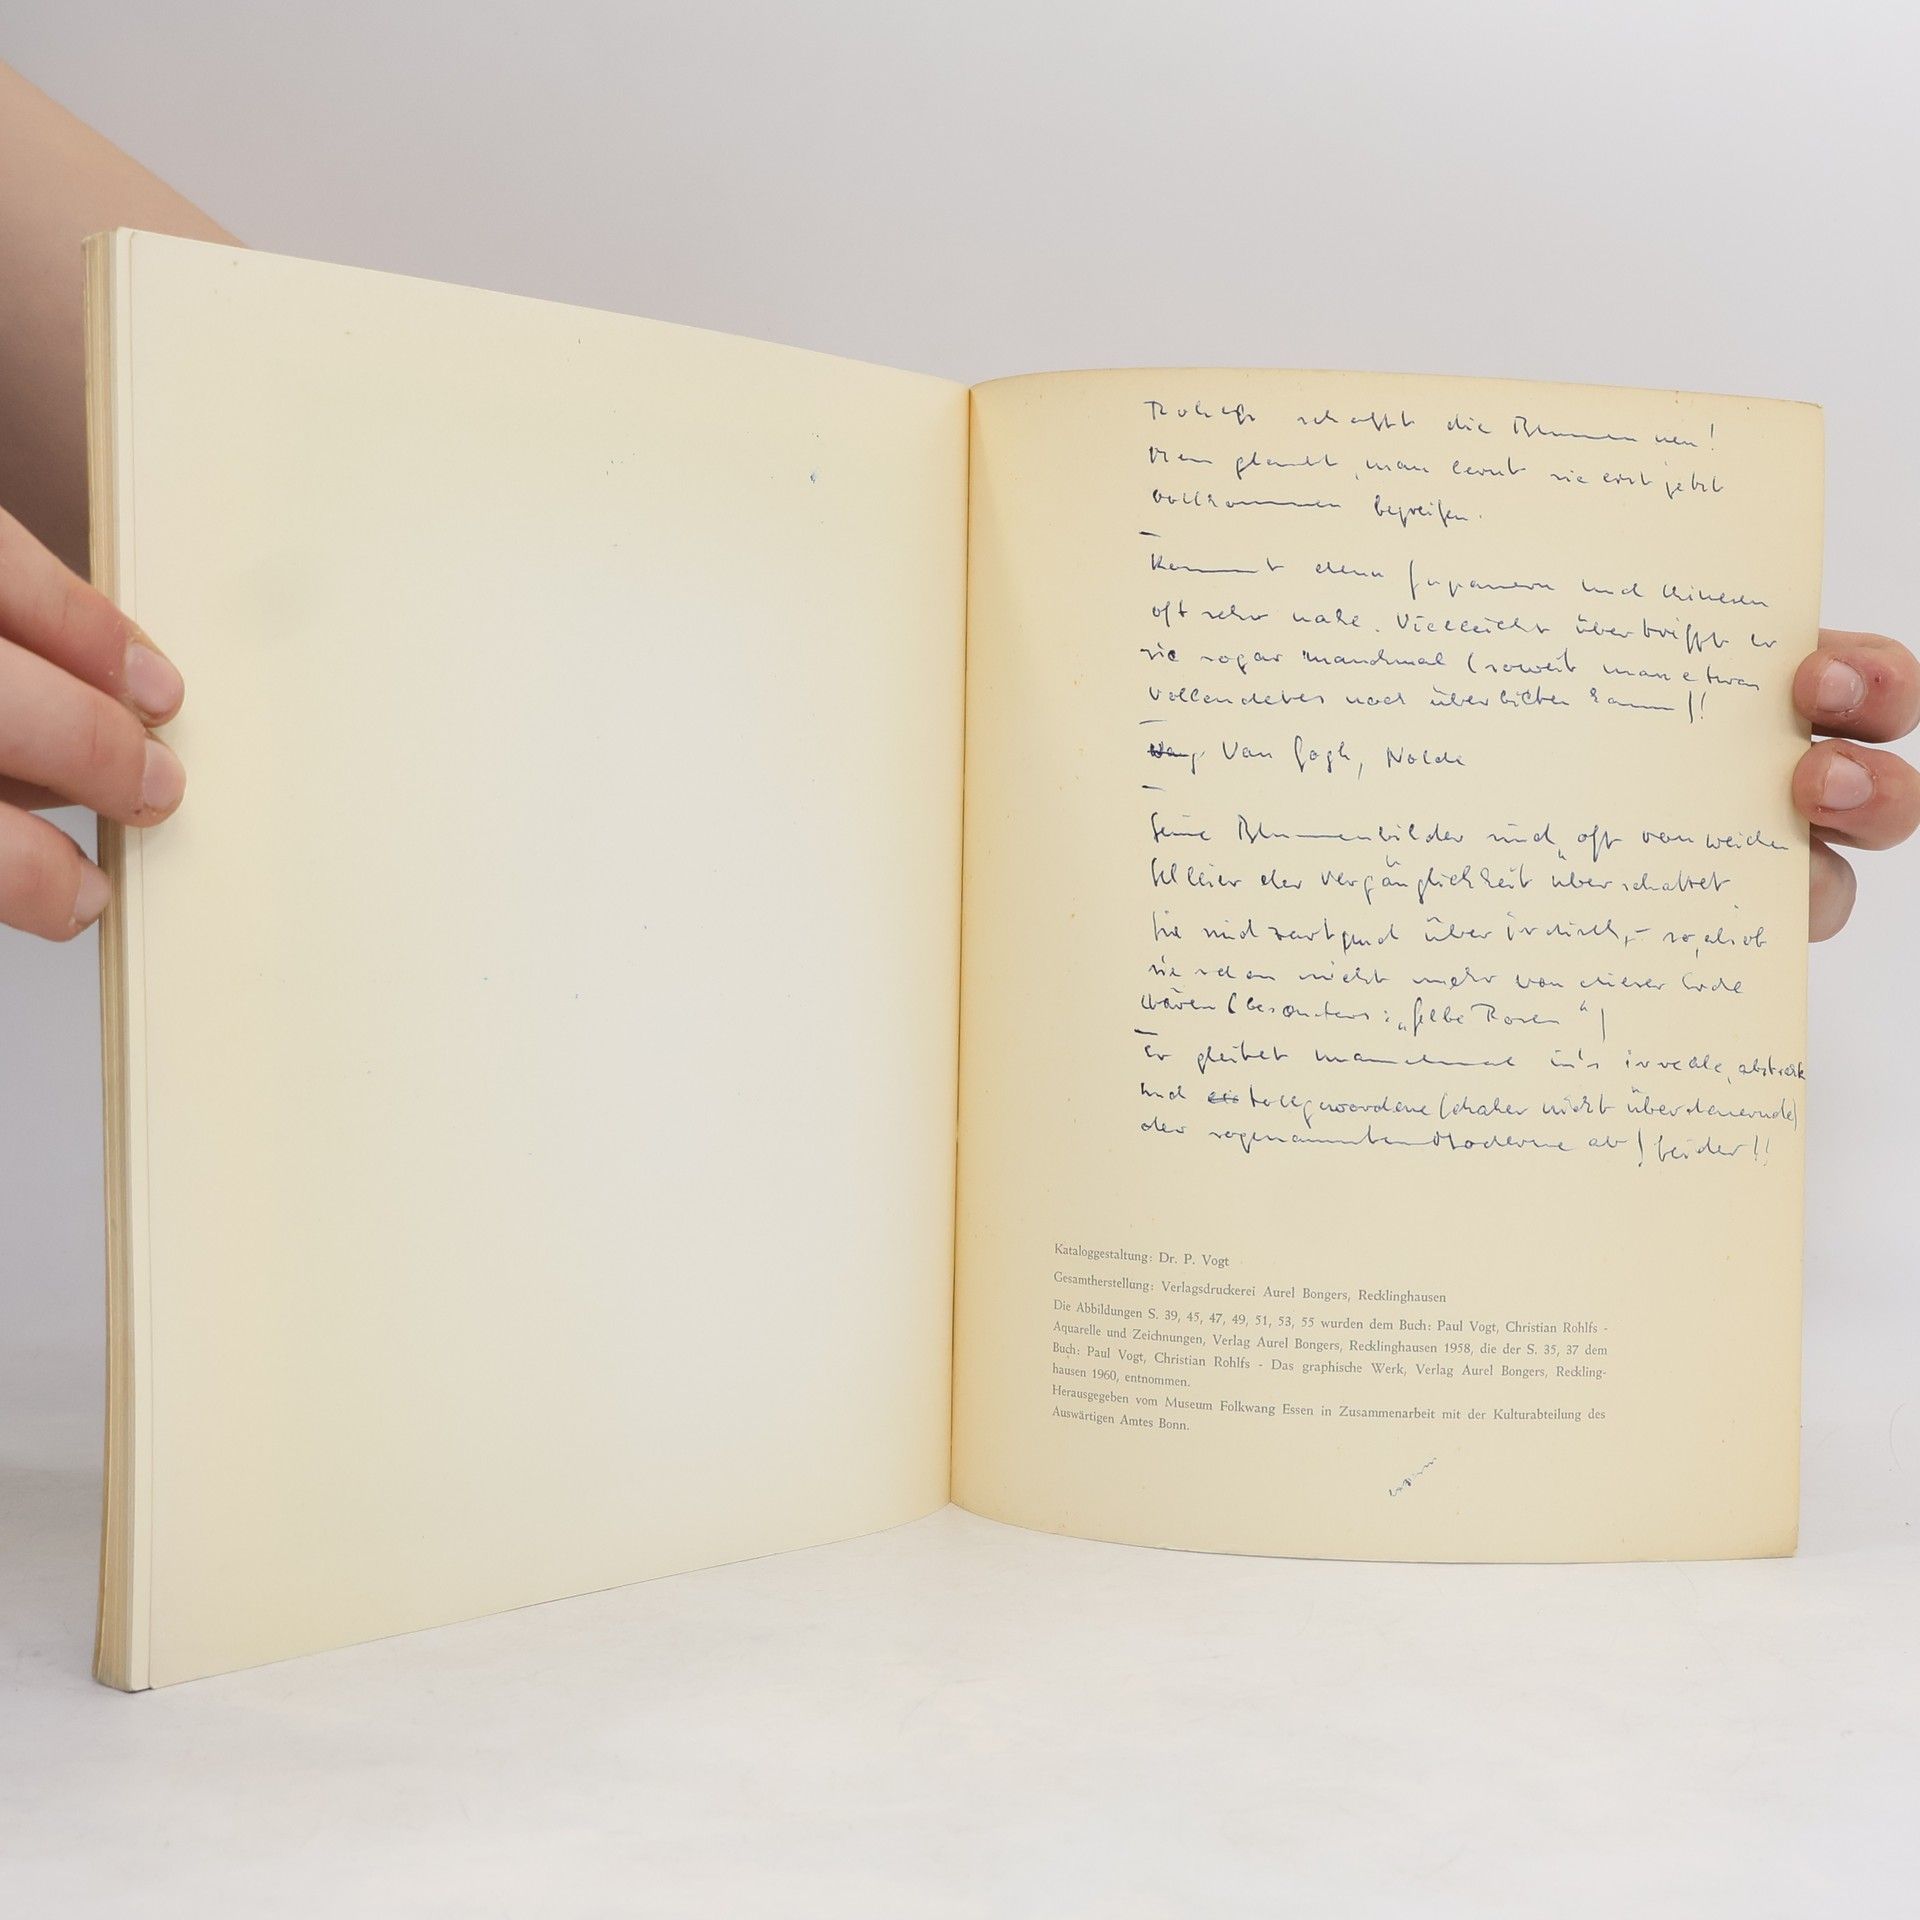 Rohlfs schafft die Blumen neu!
Man glaubt, man lernt sie erst jetzt
vollkommen begreifen.
Kommt denn Japanern und Chinesen
oft sehr nahe. Vielleicht übertrifft er
sie sogar manchmal (soweit man etwas
vollendetes noch überbieten kann)!
Van Gogh, Nolde
Seine Blumenbilder sind oft von weichen
Schleier der Vergänglichkeit überschattet
Sie sind zart und überirdisch, – so, als ob
sie schon nicht mehr von dieser Erde
wären (besonders: „Gelbe Rosen“)
Er gleitet manchmal in's irreale, abstrakt
und tollgewordene (daher nicht überdauernde)
der sogenannten Moderne ab! Leider!!
Kataloggestaltung: Dr. P. Vogt
Gesamtherstellung: Verlagsdruckerei Aurel Bongers, Recklinghausen
Die Abbildungen S. 39, 45, 47, 49, 51, 53, 55 wurden dem Buch: Paul Vogt, Christian Rohlfs -
Aquarelle und Zeichnungen, Verlag Aurel Bongers, Recklinghausen 1958, die der S. 35, 37 dem
Buch: Paul Vogt, Christian Rohlfs - Das graphische Werk, Verlag Aurel Bongers, Reckling-
hausen 1960, entnommen.
Herausgegeben vom Museum Folkwang Essen in Zusammenarbeit mit der Kulturabteilung des
Auswärtigen Amtes Bonn.